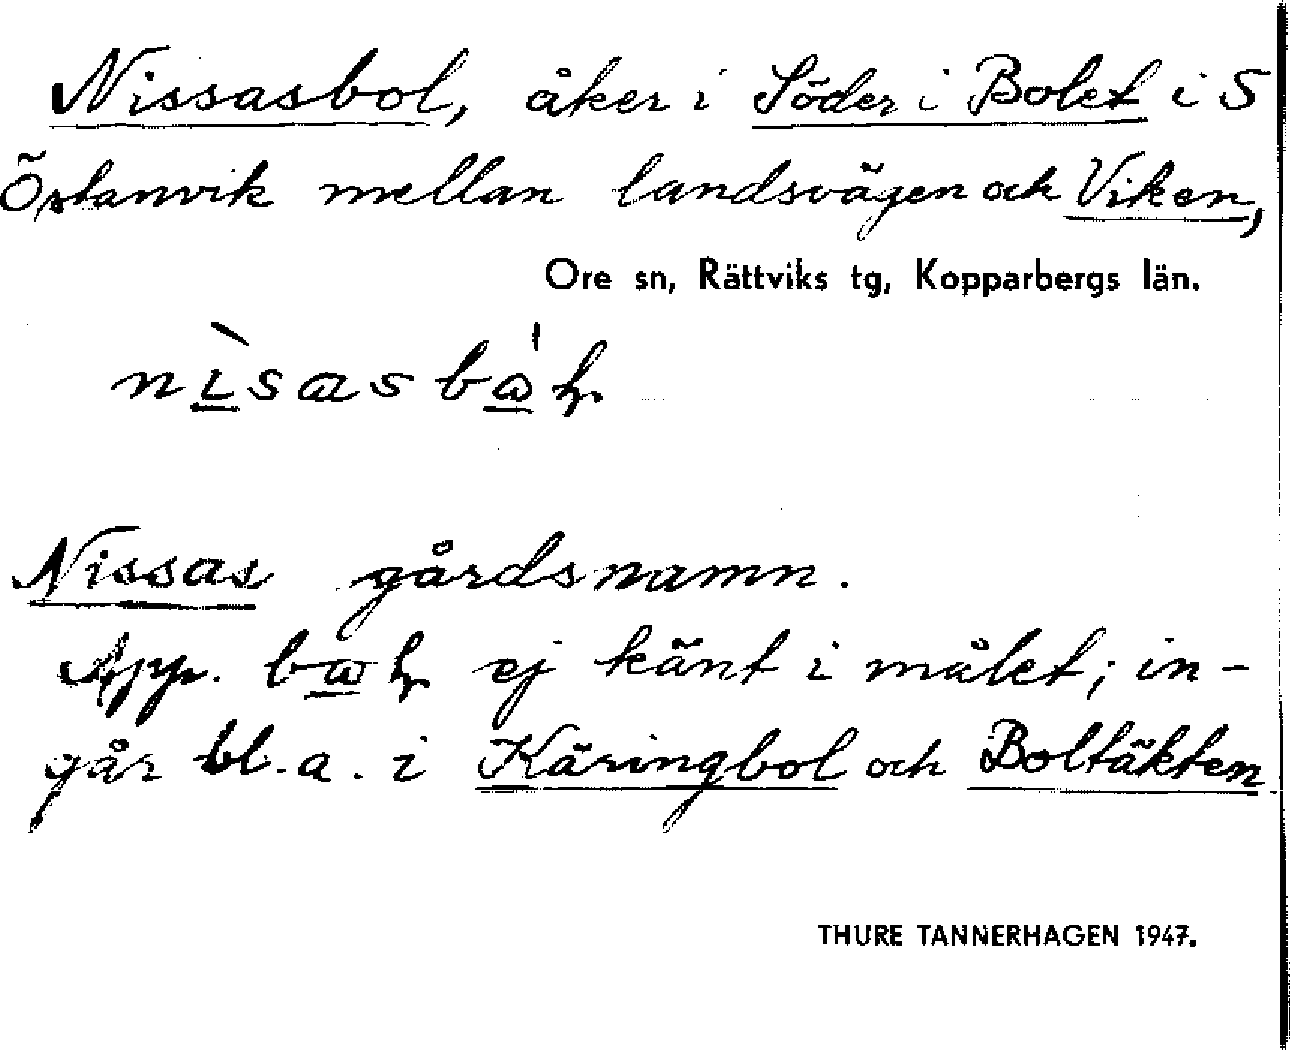 Nissasbol, åker i Söder i Bolet i S
Östanvik mellan landsvägen och Viken,
Ore sn, Rättviks tg, Kopparbergs län.
Nissas gårdsnamn.
App. ej känt i målet; in-
går bl.a. i Käringbol och Boltäkten
THURE TANNERHAGEN 1947.